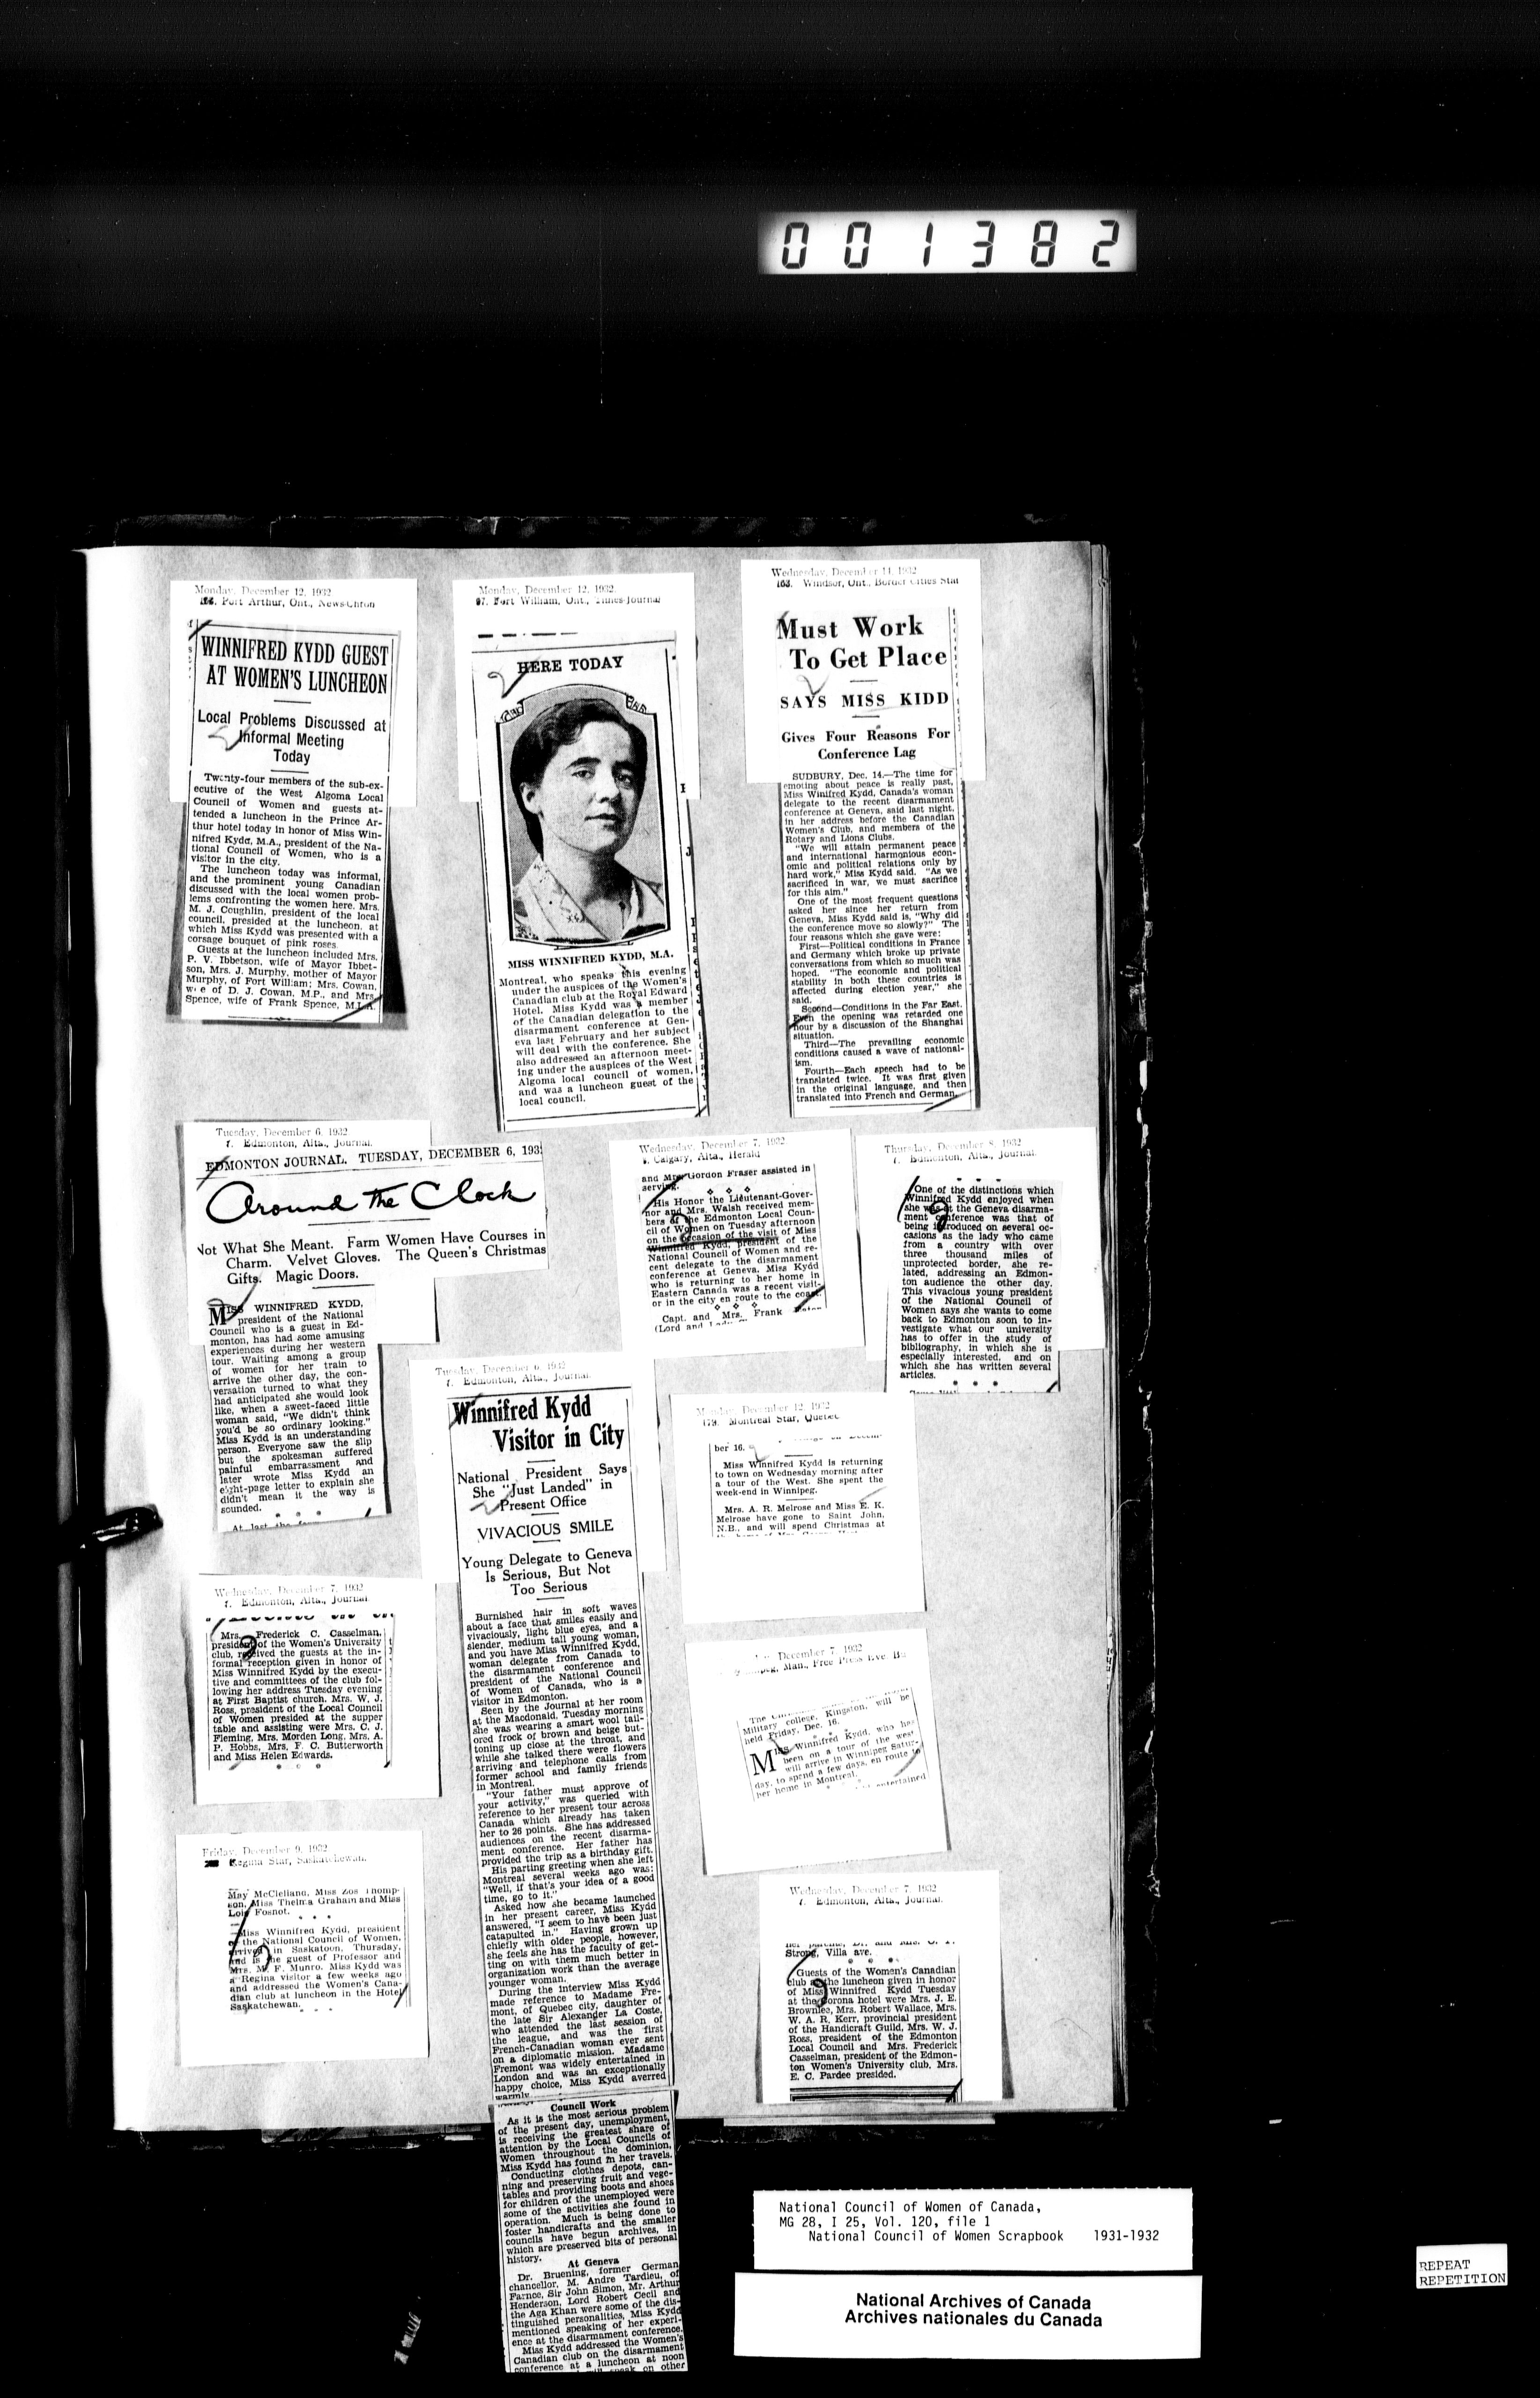 001382
Monday, December 12, 1932
Port Arthur, Ont., News-Chron
WINNIFRED KYDD GUEST
AT WOMEN'S LUNCHEON
Local Problems Discussed at
Informal Meeting
Today
Twenty-four members of the sub-ex-
ecutive of the West Algoma Local
Council of Women and guests at-
tended a luncheon in the Prince Ar-
thur hotel today in honor of Miss Win-
nifred Kydd, M.A., president of the Na-
tional Council of Women, who is a
visitor in the city.
The luncheon today was informal,
and the prominent young Canadian
discussed with the local women prob-
lems confronting the women here. Mrs.
M. J. Coughlin, president of the local
council, presided at the luncheon, at
which Miss Kydd was presented with a
corsage bouquet of pink roses.
Guests at the luncheon included Mrs.
P. V. Ibbetson, wife of Mayor Ibbet-
son, Mrs. J. Murphy, mother of Mayor
Murphy, of Fort William; Mrs. Cowan,
w e of D. J. Cowan, M.P., and Mrs.
Spence, wife of Frank Spence, M.L.A.
Monday, December 12, 1932
97. Fort William, Ont., Times-Journal
HERE TODAY
MISS WINNIFRED KYDD, M.A.
Montreal, who speaks this evening
under the auspices of the Women's
Canadian club at the Royal Edward
Hotel. Miss Kydd was a member
of the Canadian delegation to the
disarmament conference at Gen-
eva last February and her subject
will deal with the conference. She
also addressed an afternoon meet-
ing under the auspices of the West
Algoma local council of women,
and was a luncheon guest of the
local council.
Wednesday, December 14, 1932
163. Windsor, Ont., Border Cities Star
Must Work
To Get Place
SAYS MISS KIDD
Gives Four Reasons For
Conference Lag
SUDBURY, Dec. 14.—The time for
emoting about peace is really past,
Miss Winifred Kydd, Canada's woman
delegate to the recent disarmament
conference at Geneva, said last night,
in her address before the Canadian
Women's Club, and members of the
Rotary and Lions Clubs.
"We will attain permanent peace
and international harmonious econ-
omic and political relations only by
hard work," Miss Kydd said. "As we
sacrificed in war, we must sacrifice
for this aim."
One of the most frequent questions
asked her since her return from
Geneva, Miss Kydd said is, "Why did
the conference move so slowly?" The
four reasons which she gave were:
First—Political conditions in France
and Germany which broke up private
conversations from which so much was
hoped. "The economic and political
stability in both these countries is
affected during election year," she
said.
Second—Conditions in the Far East.
Even the opening was retarded one
hour by a discussion of the Shanghai
situation.
Third—The prevailing economic
conditions caused a wave of national-
ism.
Fourth—Each speech had to be
translated twice. It was first given
in the original language, and then
translated into French and German.
Tuesday, December 6, 1932
7. Edmonton, Alta., Journal.
EDMONTON JOURNAL. TUESDAY, DECEMBER 6, 193
Around the Clock
Not What She Meant. Farm Women Have Courses in
Charm. Velvet Gloves. The Queen's Christmas
Gifts. Magic Doors.
MISS WINNIFRED KYDD,
president of the National
Council who is a guest in Ed-
monton, has had some amusing
experiences during her western
tour. Waiting among a group
of women for her train to
arrive the other day, the con-
versation turned to what they
had anticipated she would look
like, when a sweet-faced little
woman said, "We didn't think
you'd be so ordinary looking."
Miss Kydd is an understanding
person. Everyone saw the slip
but the spokesman suffered
painful embarrassment and
later wrote Miss Kydd an
eight-page letter to explain she
didn't mean it the way is
sounded.
At last the
Wednesday, December 7, 1932
Calgary, Alta., Herald
and Mrs. Gordon Fraser assisted in
serving.
His Honor the Lieutenant-Gover-
nor and Mrs. Walsh received mem-
bers of the Edmonton Local Coun-
cil of Women on Tuesday afternoon
on the occasion of the visit of Miss
Winnifred Kydd, president of the
National Council of Women and re-
cent delegate to the disarmament
conference at Geneva. Miss Kydd
who is returning to her home in
Eastern Canada was a recent visit-
or in the city en route to the coast.
Capt. and Mrs. Frank
(Lord and
Thursday, December 8, 1932
7. Edmonton, Alta., Journal.
One of the distinctions which
Winnifred Kydd enjoyed when
she was at the Geneva disarma-
ment conference was that of
being introduced on several oc-
casions as the lady who came
from a country with over
three thousand miles of
unprotected border, she re-
lated, addressing an Edmon-
ton audience the other day.
This vivacious young president
of the National Council of
Women says she wants to come
back to Edmonton soon to in-
vestigate what our university
has to offer in the study of
bibliography, in which she is
especially interested, and on
which she has written several
articles.
Tuesday, December 6, 1932
7. Edmonton, Alta., Journal.
Winnifred Kydd
Visitor in City
National President Says
She "Just Landed" in
Present Office
VIVACIOUS SMILE
Young Delegate to Geneva
Is Serious, But Not
Too Serious
Burnished hair in soft waves
about a face that smiles easily and
vivaciously, light blue eyes, and a
slender, medium tall young woman,
and you have Miss Winnifred Kydd,
woman delegate from Canada to
the disarmament conference and
president of the National Council
of Women of Canada, who is a
visitor in Edmonton.
Seen by the Journal at her room
at the Macdonald, Tuesday morning
she was wearing a smart wool tail-
ored frock of brown and beige but-
toning up close at the throat, and
while she talked there were flowers
arriving and telephone calls from
former school and family friends
in Montreal.
"Your father must approve of
your activity," was queried with
reference to her present tour across
Canada which already has taken
her to 26 points. She has addressed
audiences on the recent disarma-
ment conference. Her father has
provided the trip as a birthday gift.
His parting greeting when she left
Montreal several weeks ago was:
"Well, if that's your idea of a good
time, go to it."
Asked how she became launched
in her present career, Miss Kydd
answered, "I seem to have been just
catapulted in." Having grown up
chiefly with older people, however,
she feels she has the faculty of get-
ting on with them much better in
organization work than the average
younger woman.
During the interview Miss Kydd
made reference to Madame Fre-
mont, of Quebec city, daughter of
the late Sir Alexander La Coste,
who attended the last session of
the league, and was the first
French-Canadian woman ever sent
on a diplomatic mission. Madame
Fremont was widely entertained in
London and was an exceptionally
happy choice, Miss Kydd averred
warmly.
Council Work
As it is the most serious problem
of the present day, unemployment,
is receiving the greatest share of
attention by the Local Councils of
Women throughout the dominion,
Miss Kydd has found in her travels.
Conducting clothes depots, can-
ning and preserving fruit and vege-
tables and providing boots and shoes
for children of the unemployed were
some of the activities she found in
operation. Much is being done to
foster handicrafts and the smaller
councils have begun archives, in
which are preserved bits of personal
history.
At Geneva
Dr. Bruening, former German
chancellor, M. Andre Tardieu, of
Farnce, Sir John Simon, Mr. Arthur
Henderson, Lord Robert Cecil and
the Aga Khan were some of the dis-
tinguished personalities, Miss Kydd
mentioned speaking of her experi-
ence at the disarmament conference.
Miss Kydd addressed the Women's
Canadian club on the disarmament
conference at a luncheon at noon
speak on other
Monday, December 12, 1932
179. Montreal Star, Quebec
ber 16.
Miss Winnifred Kydd is returning
to town on Wednesday morning after
a tour of the West. She spent the
week-end in Winnipeg.
Mrs. A. R. Melrose and Miss E. K.
Melrose have gone to Saint John,
N.B., and will spend Christmas at
Wednesday, December 7, 1932
7. Edmonton, Alta., Journal.
Mrs. Frederick C. Casselman,
president of the Women's University
club, received the guests at the in-
formal reception given in honor of
Miss Winnifred Kydd by the execu-
tive and committees of the club fol-
lowing her address Tuesday evening
at First Baptist church. Mrs. W. J.
Ross, president of the Local Council
of Women presided at the supper
table and assisting were Mrs. C. J.
Fleming, Mrs. Morden Long, Mrs. A.
P. Hobbs, Mrs. F. C. Butterworth
and Miss Helen Edwards.
December 7, 1932
Man., Free Press Eve. Bu
Military college, Kingston, will be
held Friday, Dec. 16.
Miss Winnifred Kydd, who has
been on a tour of the west
will arrive in Winnipeg Satur-
day, to spend a few days, en route to
her home in Montreal.
entertained
Friday, December 9, 1932
Regina Star, Saskatchewan.
May McClelland, Miss Zoe Thomp-
son, Miss Thelma Graham and Miss
Lois Fosnot.
Miss Winnifred Kydd, president
of the National Council of Women,
arrived in Saskatoon, Thursday,
and is the guest of Professor and
Mrs. M. F. Munro. Miss Kydd was
a Regina visitor a few weeks ago
and addressed the Women's Cana-
dian club at luncheon in the Hotel
Saskatchewan.
Wednesday, December 7, 1932
7. Edmonton, Alta., Journal.
Strong, Villa ave.
Guests of the Women's Canadian
club at the luncheon given in honor
of Miss Winnifred Kydd Tuesday
at the Corona hotel were Mrs. J. E.
Brownlee, Mrs. Robert Wallace, Mrs.
W. A. R. Kerr, provincial president
of the Handicraft Guild, Mrs. W. J.
Ross, president of the Edmonton
Local Council and Mrs. Frederick
Casselman, president of the Edmon-
ton Women's University club. Mrs.
E. C. Pardee presided.
National Council of Women of Canada,
MG 28, I 25, Vol. 120, file 1
National Council of Women Scrapbook 1931-1932
National Archives of Canada
Archives nationales du Canada
REPEAT
REPETITION